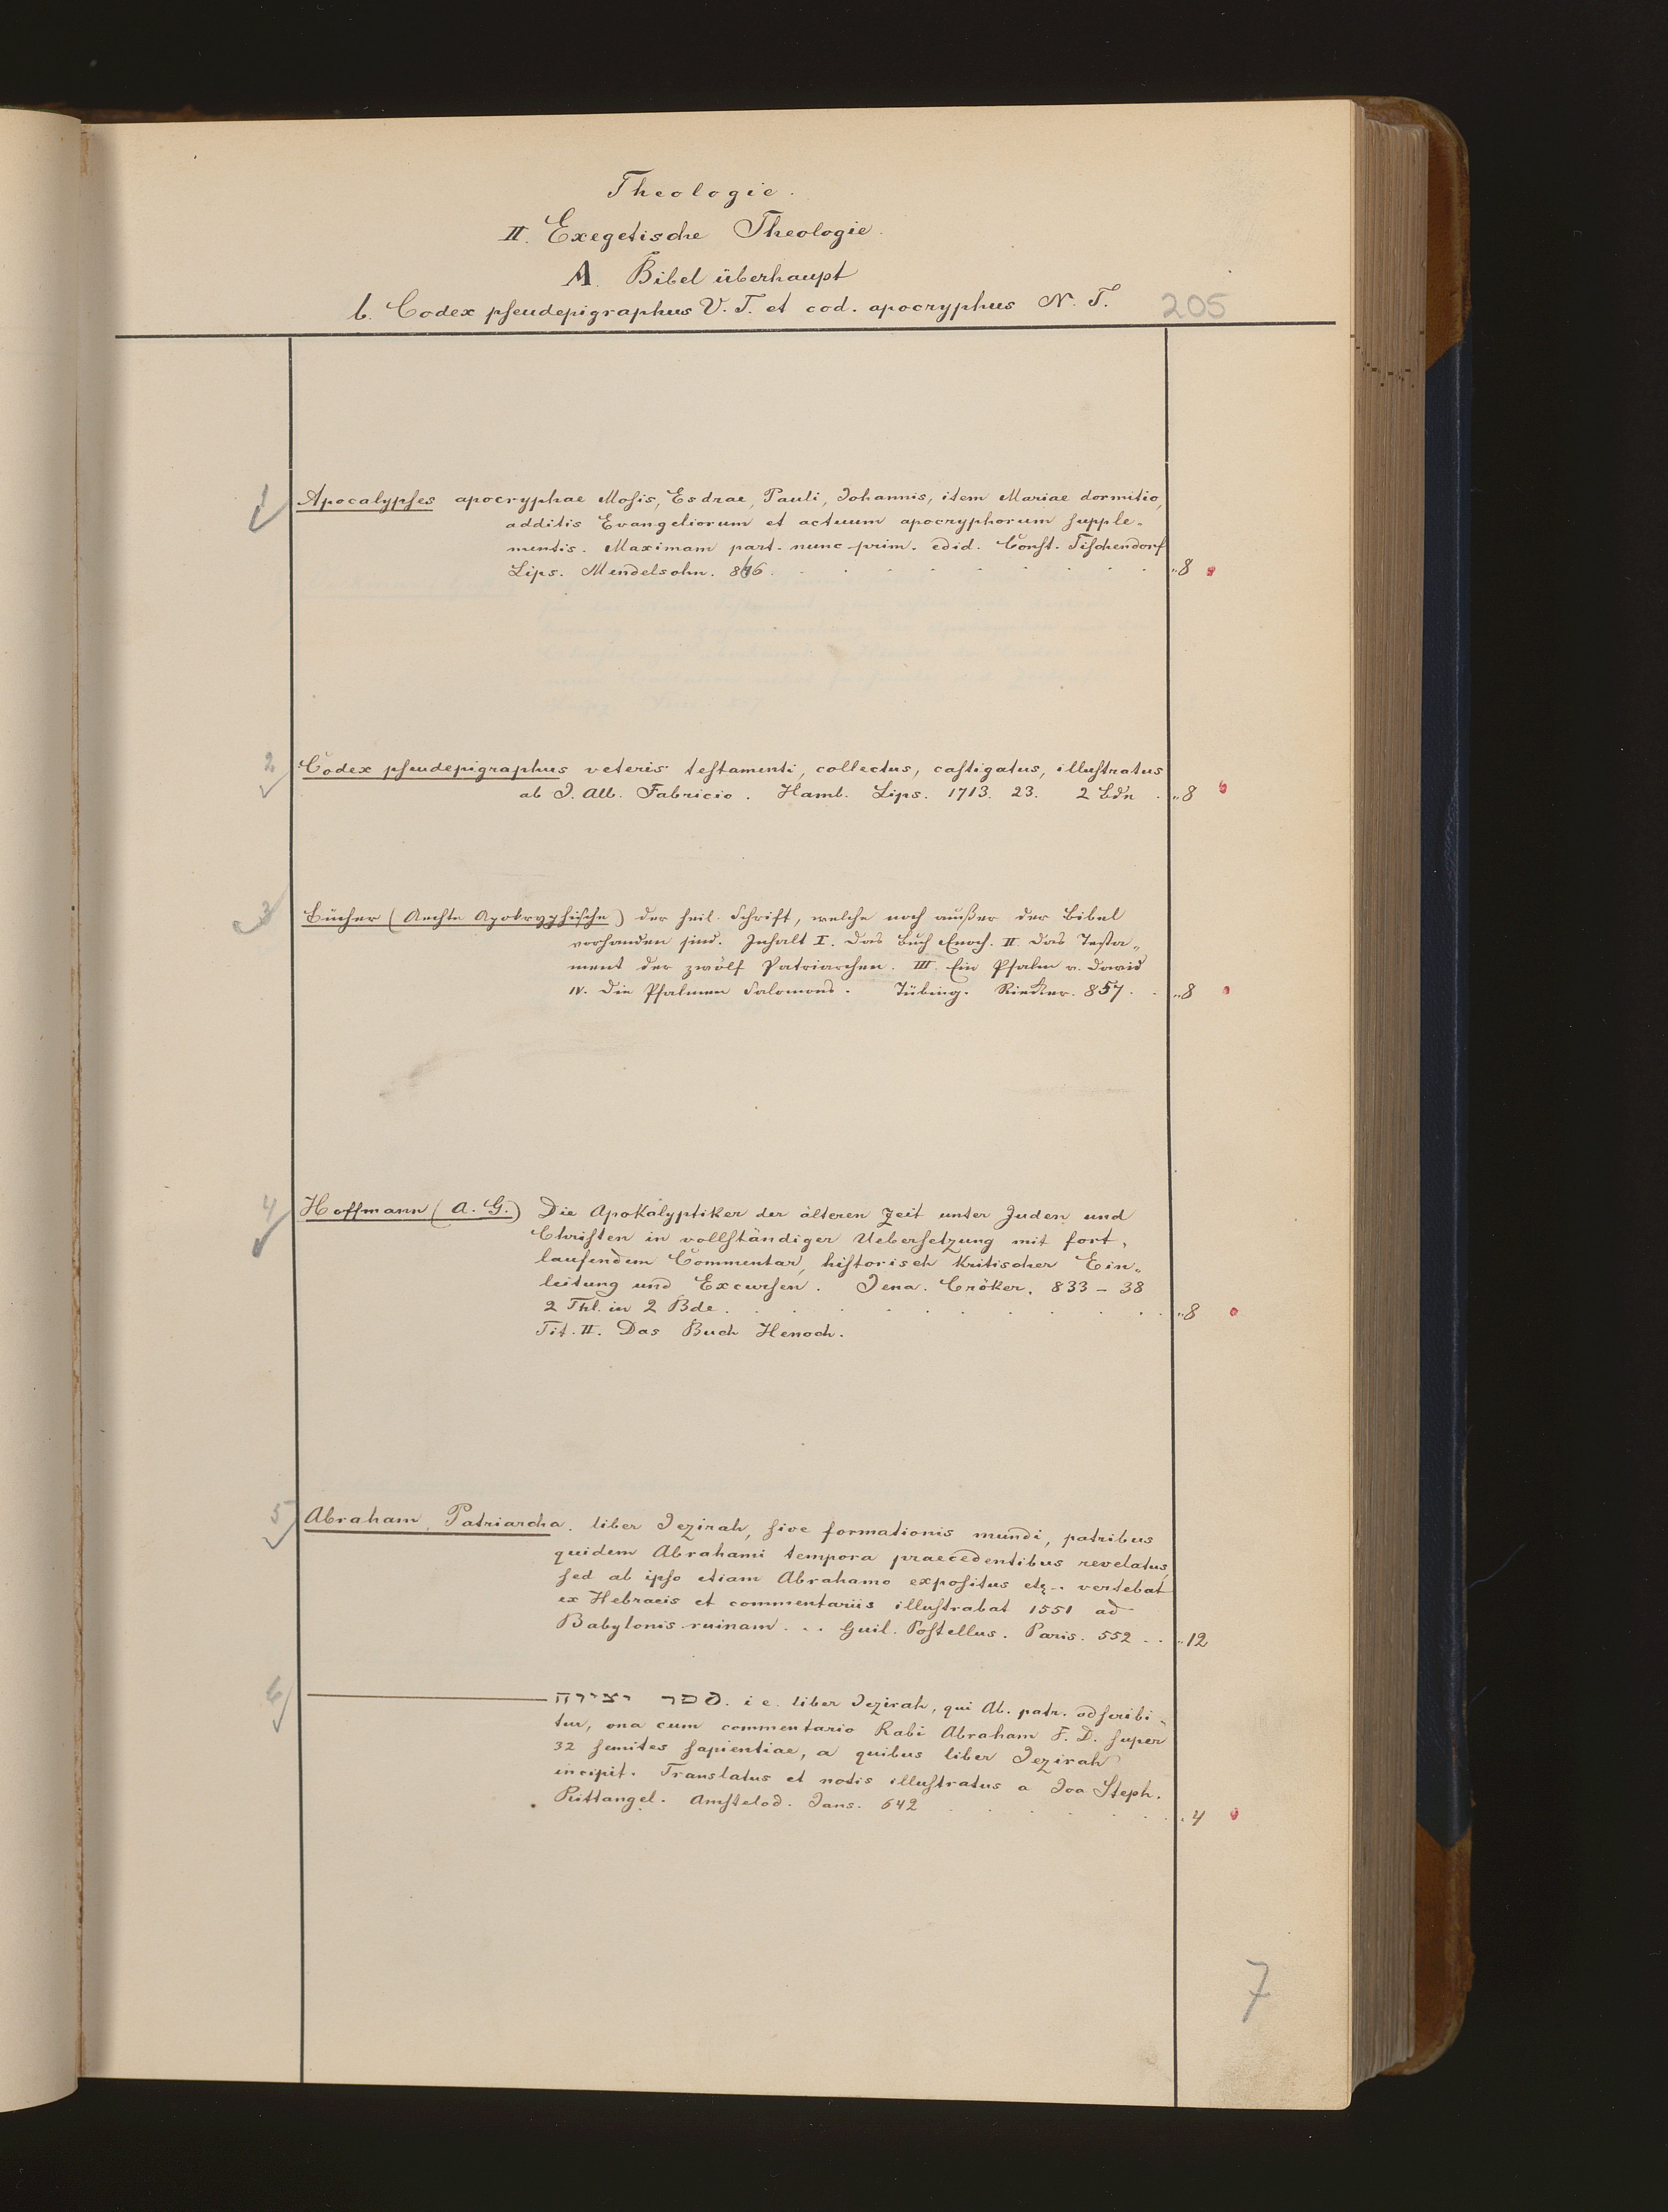 Theologie.
II. Exegetische Theologie.
A. Bibel überhaupt
b. Codex pseudepigraphus V. T. et cod. apocryphus N. T.
205
1
Apocalypses apocryphae Mosis, Esdrae, Pauli, Johannis, item Mariae dormitio,
additis Evangeliorum et actuum apocryphorum supple-
mentis. Maximam part. nunc prim. edid. Const. Tischendorf
Lips. Mendelsohn. 866. 8
2
Codex pseudepigraphus veteris testamenti, collectus, castigatus, illustratus
ab J. Alb. Fabricio. Hamb. Lips. 1713. 23. 2 Bdn . 8
3
Bücher (Aechte Apokryphische) der heil. Schrift, welche noch außer der Bibel
vorhanden sind. Inhalt I. Das Buch Enoch. II. Das Testa-
ment der zwölf Patriarchen. III. Ein Psalm v. David
IV. Die Psalmen Salomons. Tübing. Riecker. 857. . 8
4
Hoffmann (A. G.) Die Apokalyptiker der älteren Zeit unter Juden und
Christen in vollständiger Uebersetzung mit fort-
laufendem Commentar, historisch kritischer Ein-
leitung und Excursen. Jena. Cröker. 833 – 38
2 Thl. in 2 Bde. 8
Tit. II. Das Buch Henoch.
5
Abraham, Patriarcha. liber Jezirah, sive formationis mundi, patribus
quidem Abrahami tempora praecedentibus revelatus,
sed ab ipso etiam Abrahamo expositus etc.. vertebat
ex Hebraeis et commentariis illustrabat 1551 ad
Babylonis ruinam ... Guil. Postellus. Paris. 552 .. 12
6
——— ספר יצירה. i e. liber Jezirah, qui Ab. patr. adscribi-
tur, una cum commentario Rabi Abraham F. D. super
32 semites sapientiae, a quibus liber Jezirah
incipit. Translatus et notis illustratus a Joa Steph.
Rittangel. Amstelod. Jans. 642 4
7